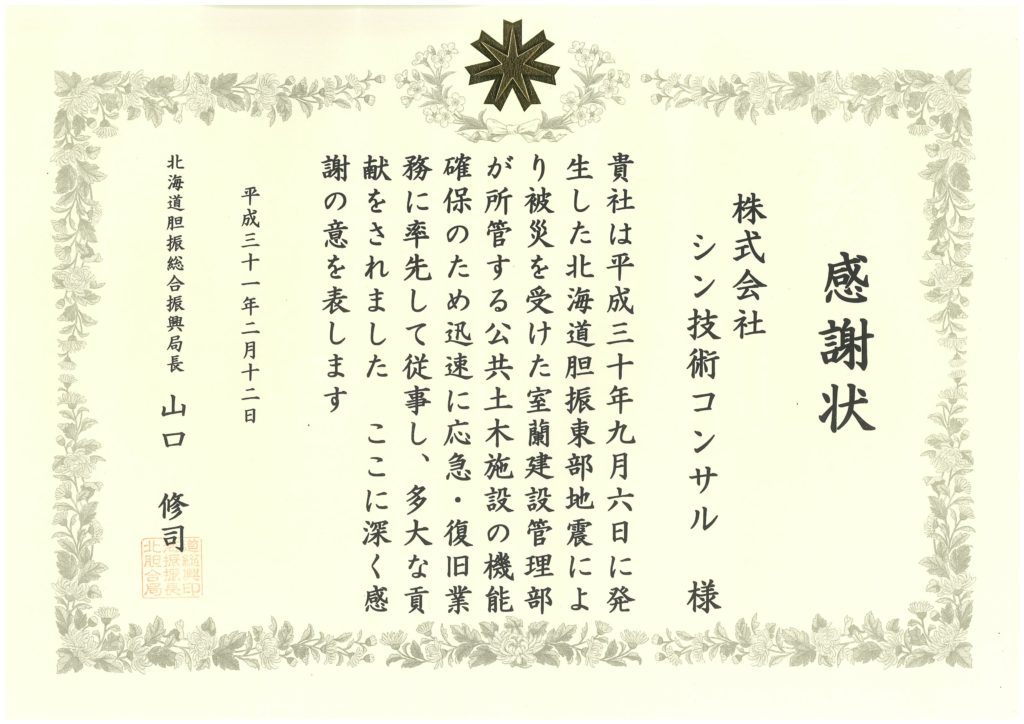 感謝状
株式会社
シン技術コンサル　様
貴社は平成三十年九月六日に発
生した北海道胆振東部地震によ
り被災を受けた室蘭建設管理部
が所管する公共土木施設の機能
確保のため迅速に応急・復旧業
務に率先して従事し、多大な貢
献をされました　ここに深く感
謝の意を表します
平成三十一年二月十二日
北海道胆振総合振興局長　山口　修司